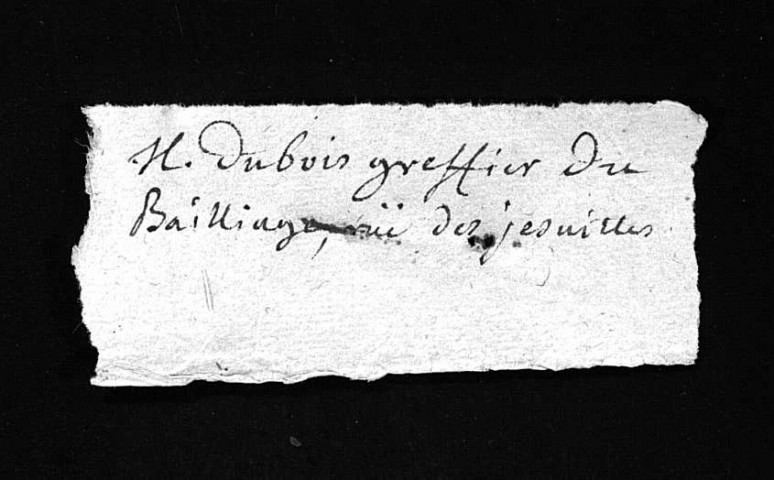 M. Dubois greffier Du
Bailliage, rüe des jesuittes